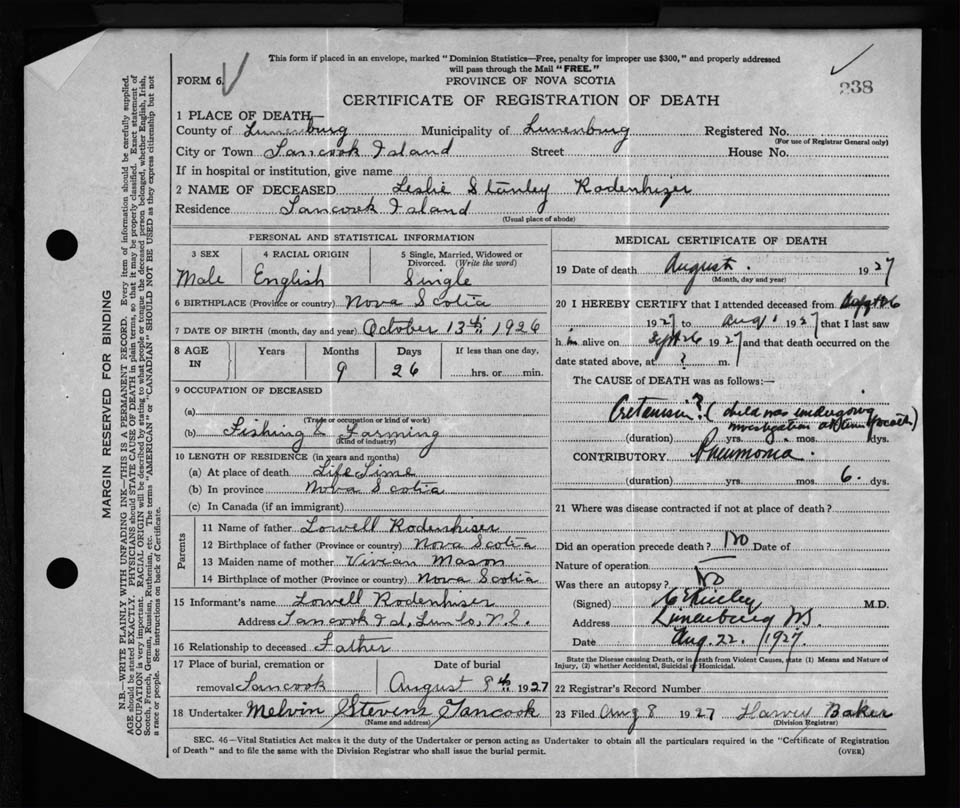 This form if placed in an envelope, marked "Dominion Statistics—Free, penalty for improper use $300," and properly addressed
will pass through the Mail "FREE."
FORM 6.
PROVINCE OF NOVA SCOTIA
238
CERTIFICATE OF REGISTRATION OF DEATH
1 PLACE OF DEATH—
County of Lunenburg Municipality of Lunenburg Registered No.
(For use of Registrar General only)
City or Town Tancook Island Street House No.
If in hospital or institution, give name
2 NAME OF DECEASED Leslie Stanley Rodenhizer
Residence Tancook Island
(Usual place of abode)
PERSONAL AND STATISTICAL INFORMATION
3 SEX 4 RACIAL ORIGIN 5 Single, Married, Widowed or
Divorced. (Write the word)
Male English Single
6 BIRTHPLACE (Province or country) Nova Scotia
7 DATE OF BIRTH (month, day and year) October 13th 1926
8 AGE IN Years Months Days If less than one day,
9 26 hrs. or min.
9 OCCUPATION OF DECEASED
(a)
(Trade or occupation or kind of work)
(b) Fishing & Farming
(Kind of industry)
10 LENGTH OF RESIDENCE (in years and months)
(a) At place of death Life Time
(b) In province Nova Scotia
(c) In Canada (if an immigrant)
Parents
11 Name of father Lowell Rodenhiser
12 Birthplace of father (Province or country) Nova Scotia
13 Maiden name of mother Vivian Mason
14 Birthplace of mother (Province or country) Nova Scotia
15 Informant's name Lowell Rodenhiser
Address Tancook Isd, Lun Co, N.S.
16 Relationship to deceased Father
17 Place of burial, cremation or Date of burial
removal Tancook August 8th 1927
18 Undertaker Melvin Stevens Tancook
(Name and address)
MEDICAL CERTIFICATE OF DEATH
19 Date of death August. 1927
(Month, day and year)
20 I HEREBY CERTIFY that I attended deceased from
1927 to Aug. 1927 that I last saw
h im alive on 1927 and that death occurred on
date stated above, at ? m.
The CAUSE of DEATH was as follows:—
? (child was undergoing
investigation
(duration) yrs. mos. dys.
CONTRIBUTORY Pneumonia.
(duration) yrs. mos. 6. dys.
21 Where was disease contracted if not at place of death?
Did an operation precede death? NO Date of
Nature of operation —
Was there an autopsy? NO
(Signed) M.D.
Address Lunenburg NS.
Date Aug. 22. 1927.
State the Disease causing Death, or in death from Violent Causes, state (1) Means and Nature of
Injury, (2) whether Accidental, Suicidal or Homicidal.
22 Registrar's Record Number
23 Filed Aug 8 1927 Harvey Baker
(Division Registrar)
SEC. 46—Vital Statistics Act makes it the duty of the Undertaker or person acting as Undertaker to obtain all the particulars required in the "Certificate of Registration
of Death" and to file the same with the Division Registrar who shall issue the burial permit.
(OVER)
MARGIN RESERVED FOR BINDING
N.B.—WRITE PLAINLY WITH UNFADING INK—THIS IS A PERMANENT RECORD. Every item of information should be carefully supplied.
AGE should be stated EXACTLY. PHYSICIANS should STATE CAUSE OF DEATH in plain terms, so that it may be properly classified. Exact statement of
OCCUPATION is very important. RACIAL ORIGIN will be described by stating to what people or tongue the deceased person belonged, whether English, Irish,
Scotch, French, German, Russian, Ruthenian, etc. The terms "AMERICAN" or "CANADIAN" SHOULD NOT BE USED as they express citizenship but not
a race or people. See instructions on back of Certificate.